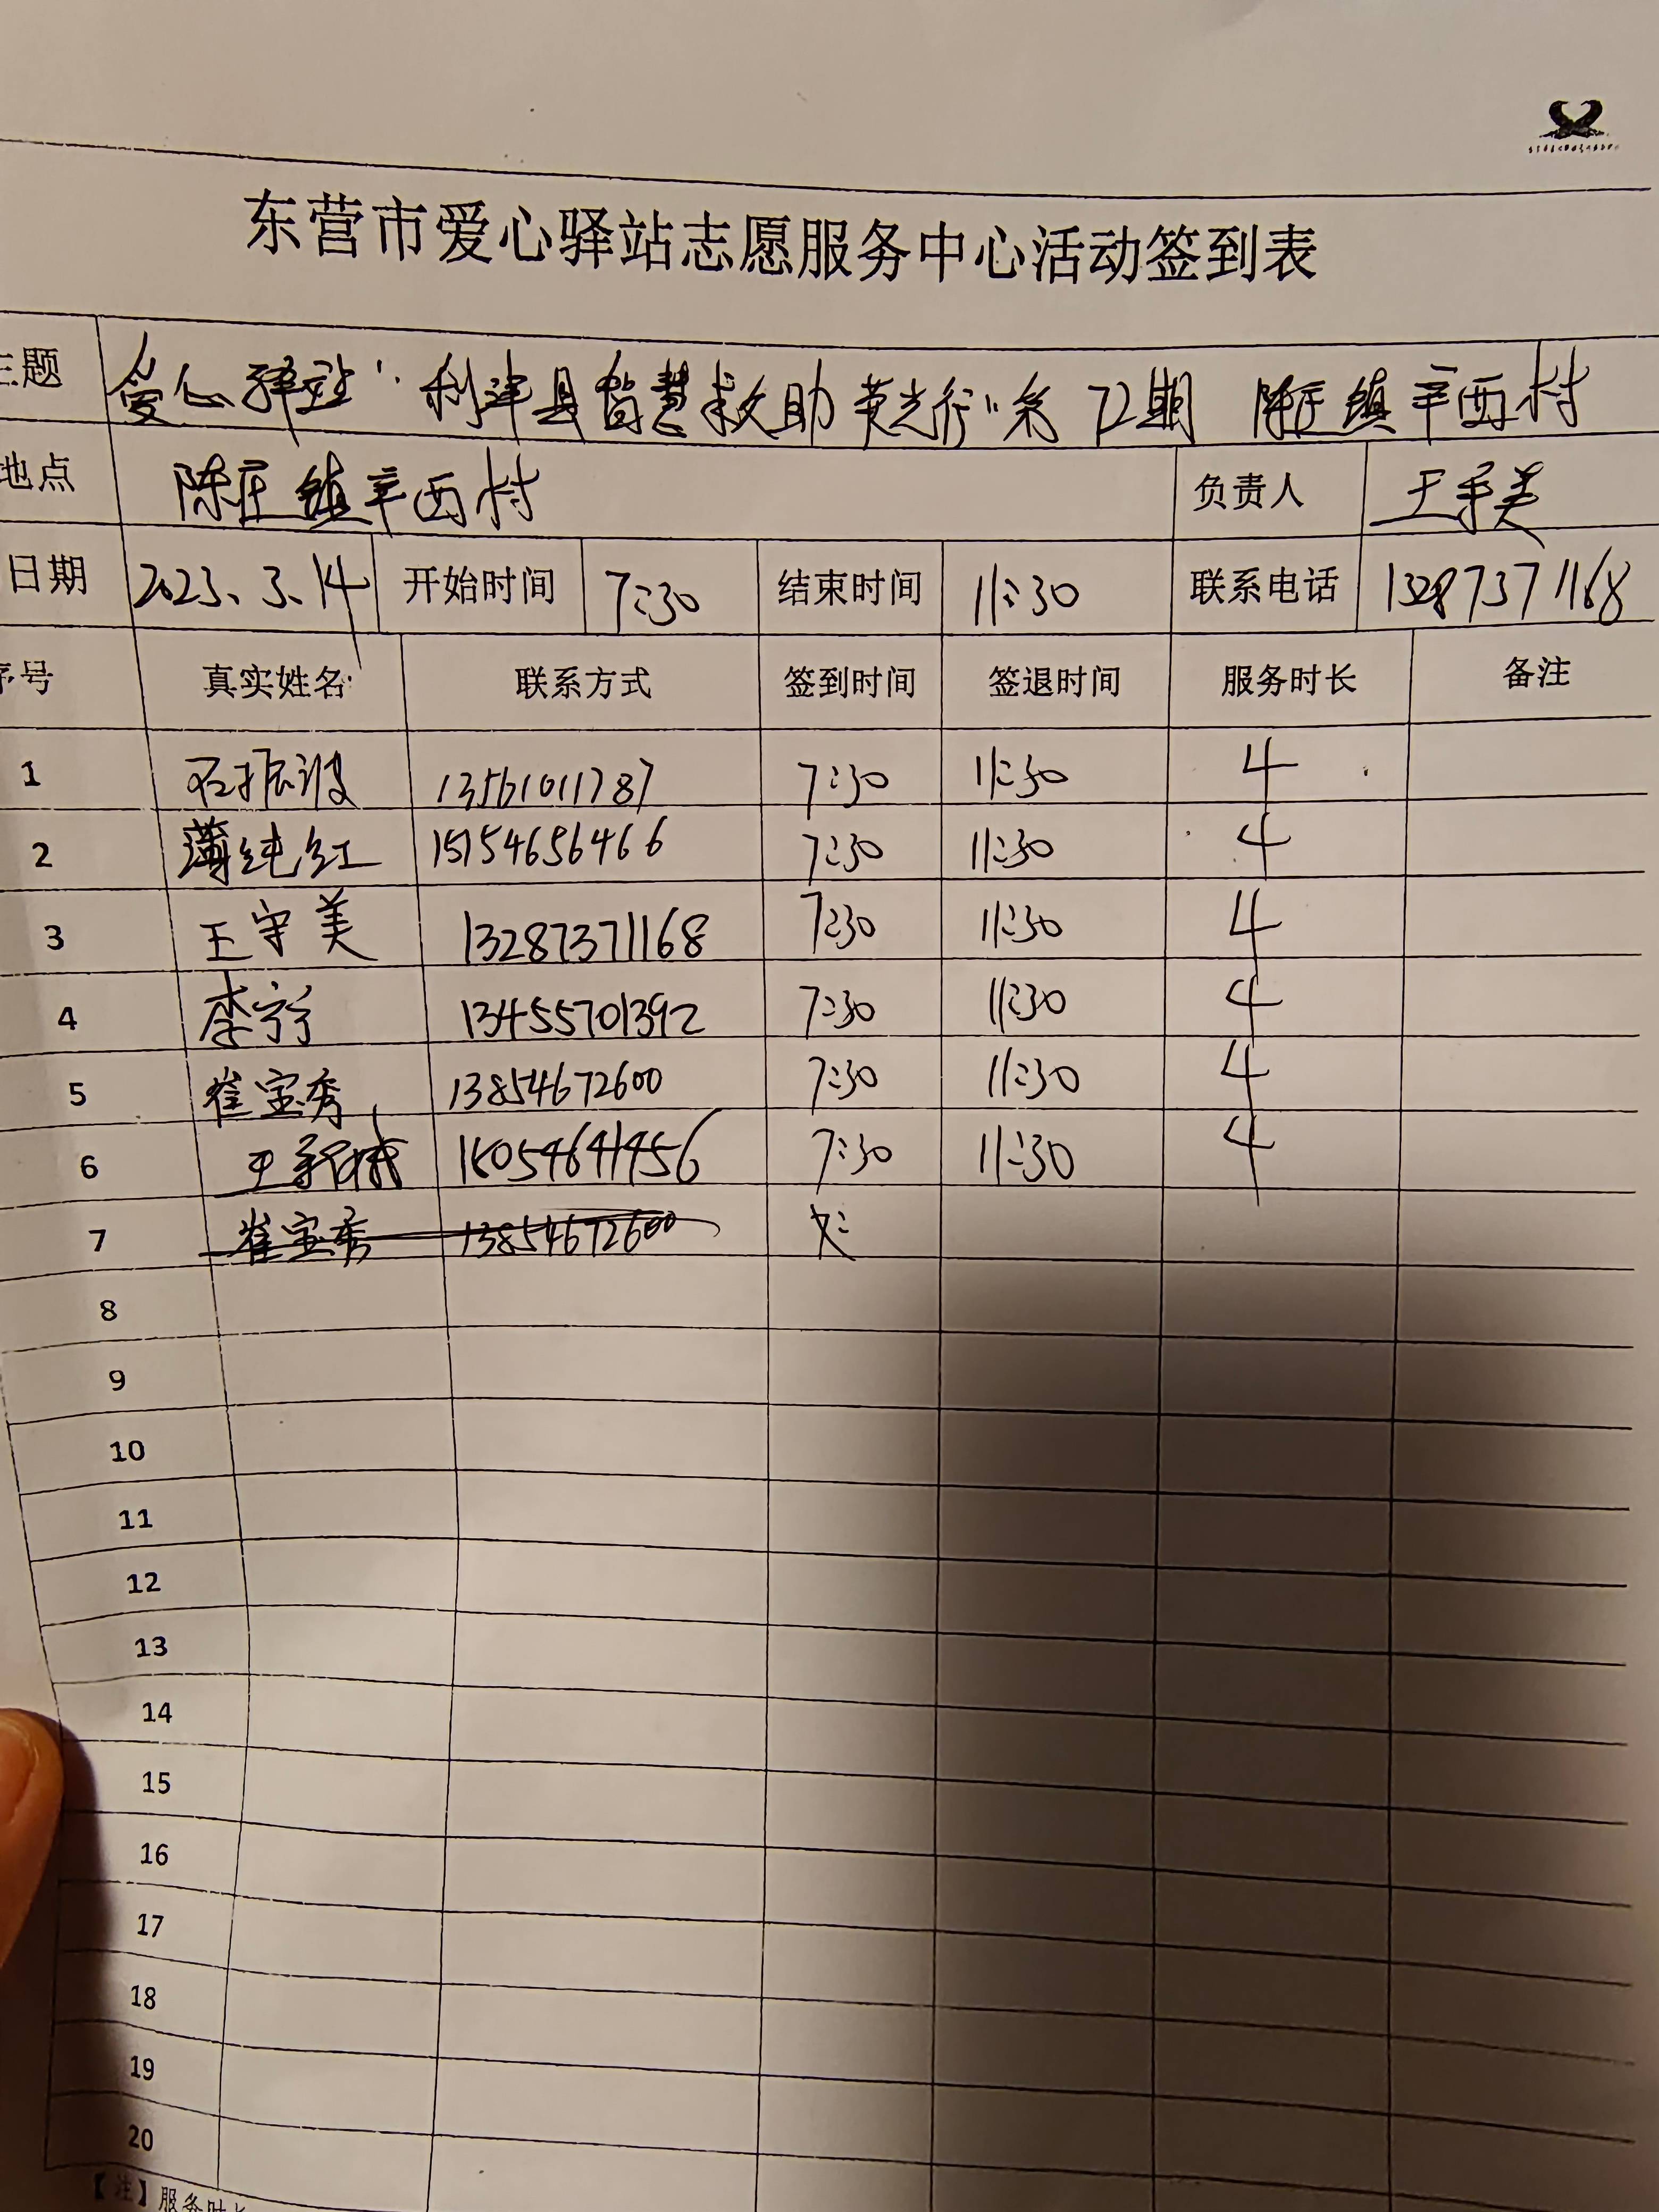 东营市爱心驿站志愿服务中心活动签到表
主题 爱心驿站“利津县智慧救助荧光行”第72期 陈庄镇辛西村
地点 陈庄镇辛西村 负责人 王守美
日期 2023.3.14 开始时间 7:30 结束时间 11:30 联系电话 13287371168
序号 真实姓名 联系方式 签到时间 签退时间 服务时长 备注
1 石振波 13561011787 7:30 11:30 4
2 薄纯红 15154656466 7:30 11:30 4
3 王守美 13287371168 7:30 11:30 4
4 李宁宁 13455701392 7:30 11:30 4
5 崔宝秀 13854672600 7:30 11:30 4
6 7:30 11:30 4
7 崔宝秀 13854672600 7:
8
9
10
11
12
13
14
15
16
17
18
19
20
【注】服务时长